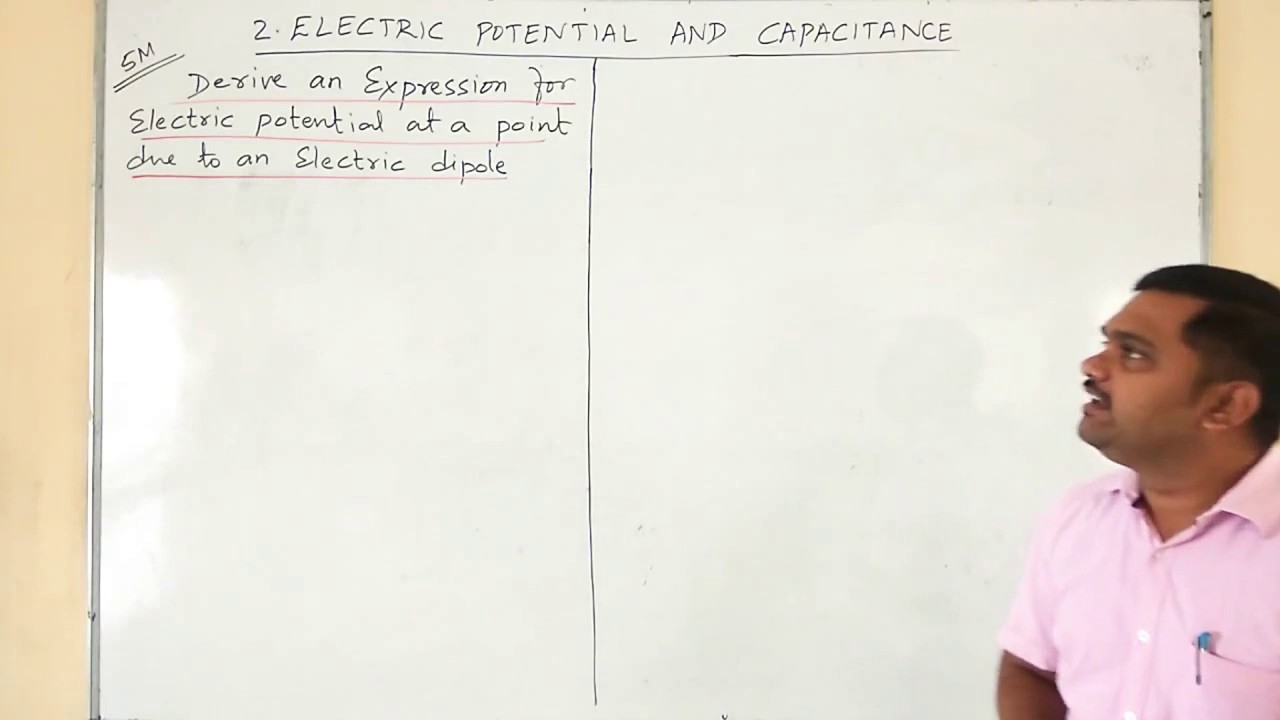 2. ELECTRIC POTENTIAL AND CAPACITANCE
5M
Derive an Expression for
Electric potential at a point
due to an Electric dipole